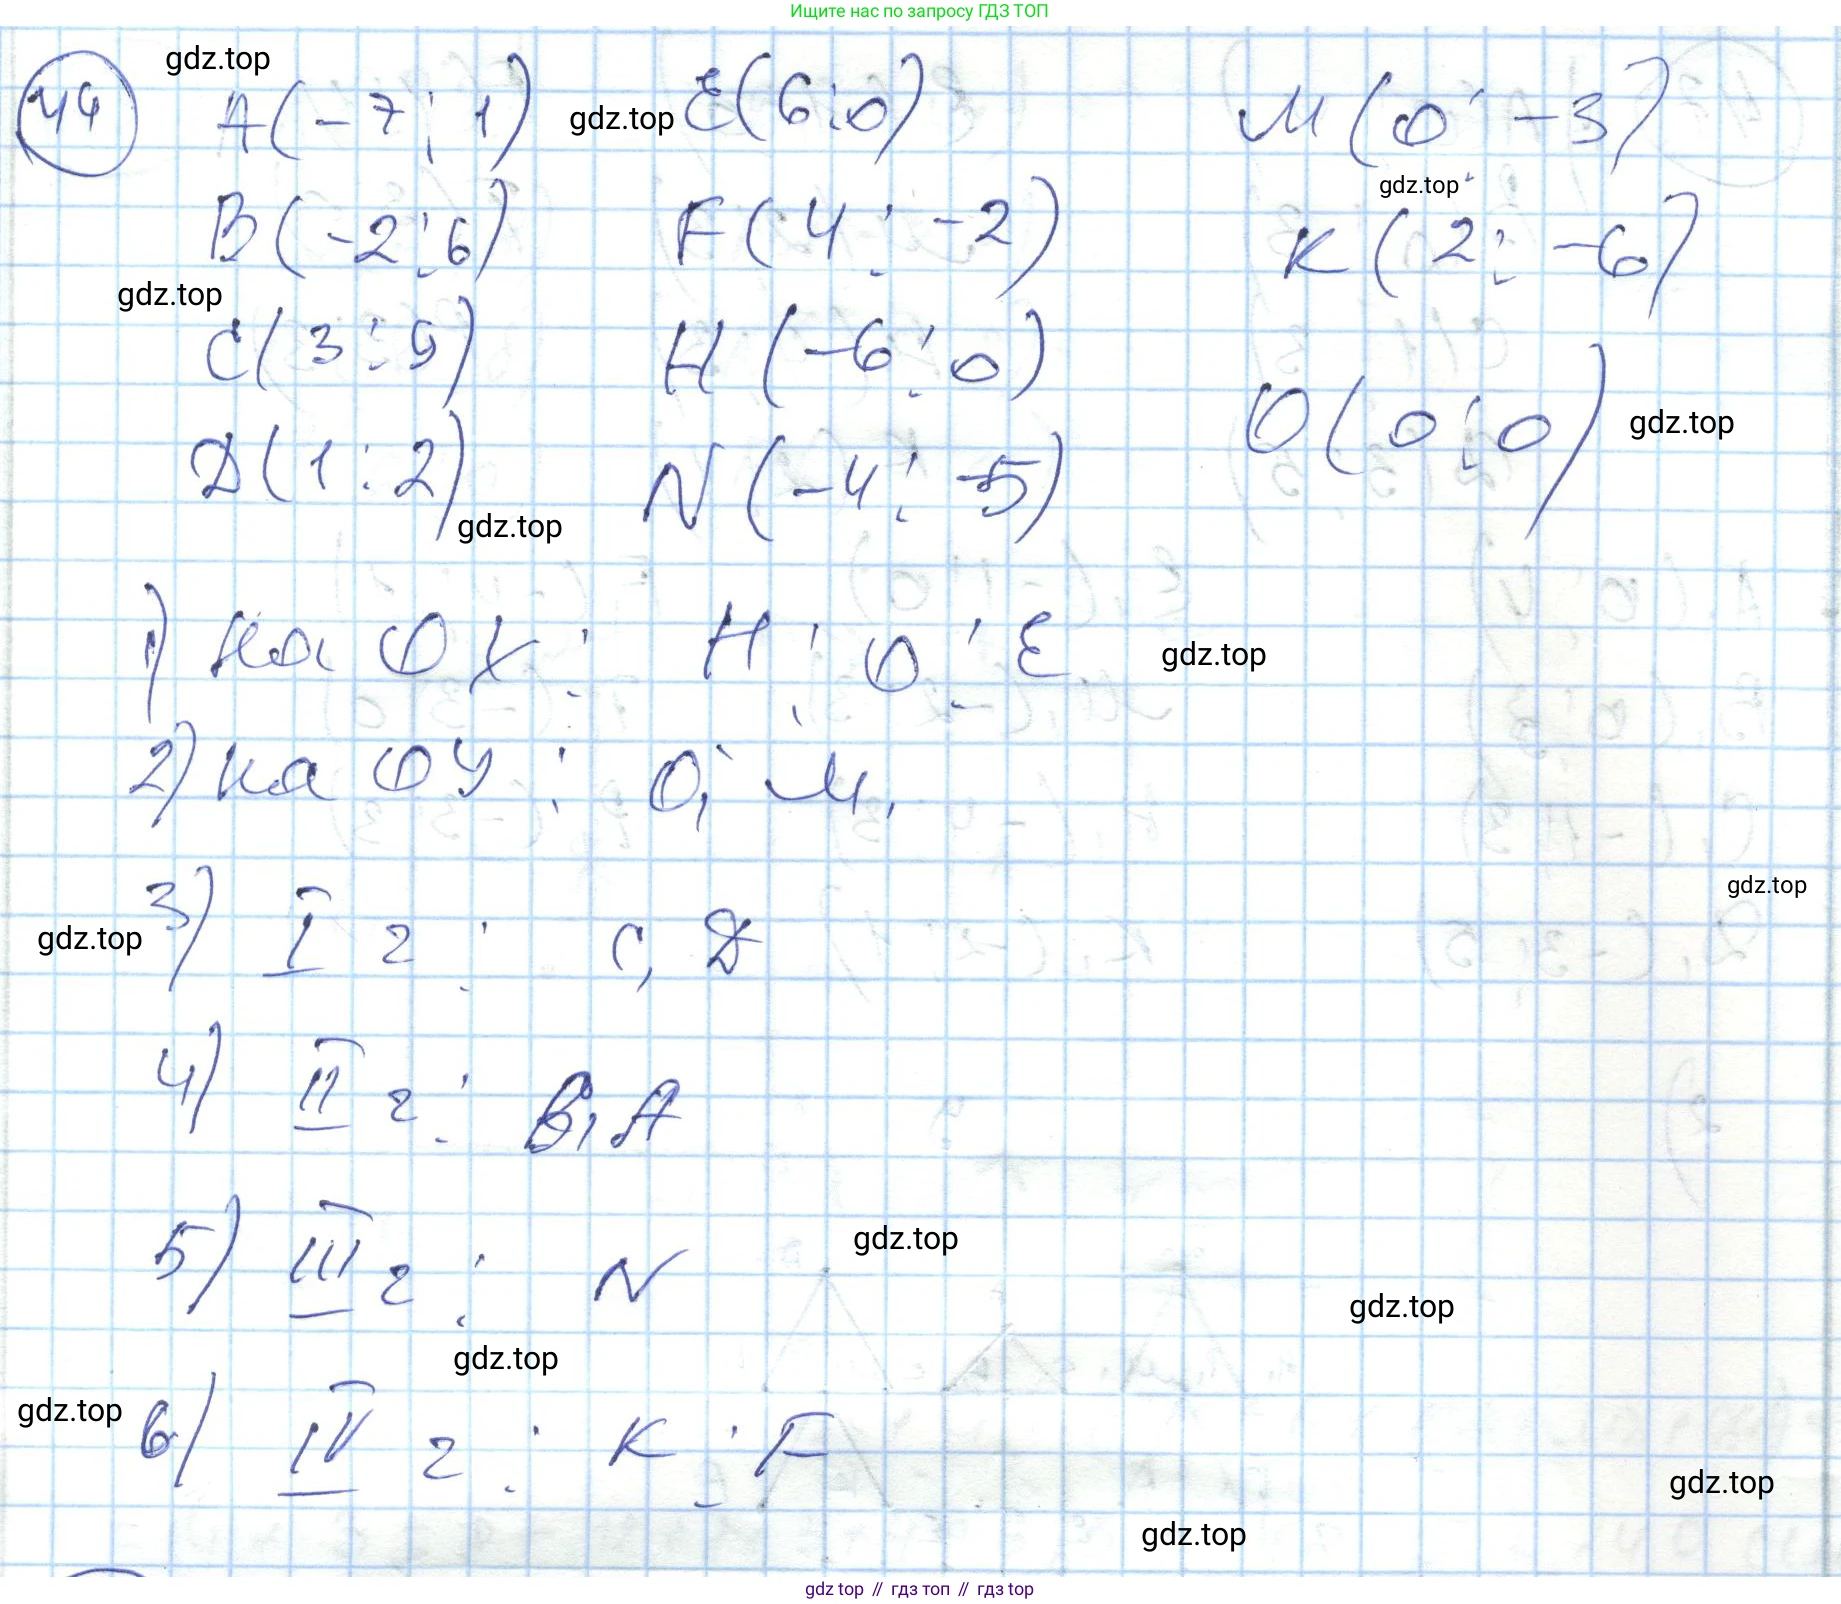 Ищите нас по запросу ГДЗ ТОП
44 gdz.top A(-7; 1) gdz.top E(6; 0) M(0; -3)
gdz.top
B(-2; 6) F(4; -2) K(2; -6)
gdz.top
C(3; 5) H(-6; 0) O(0; 0) gdz.top
D(1; 2) N(-4; -5)
gdz.top
1) на OX: H; O; E gdz.top
2) на OY: O; M,
gdz.top
gdz.top 3) I г: C, D
4) II г: B, A
5) III г: N gdz.top
gdz.top
gdz.top
gdz.top 6) IV г: K; F
gdz.top
gdz.top
gdz top // гдз топ // гдз top